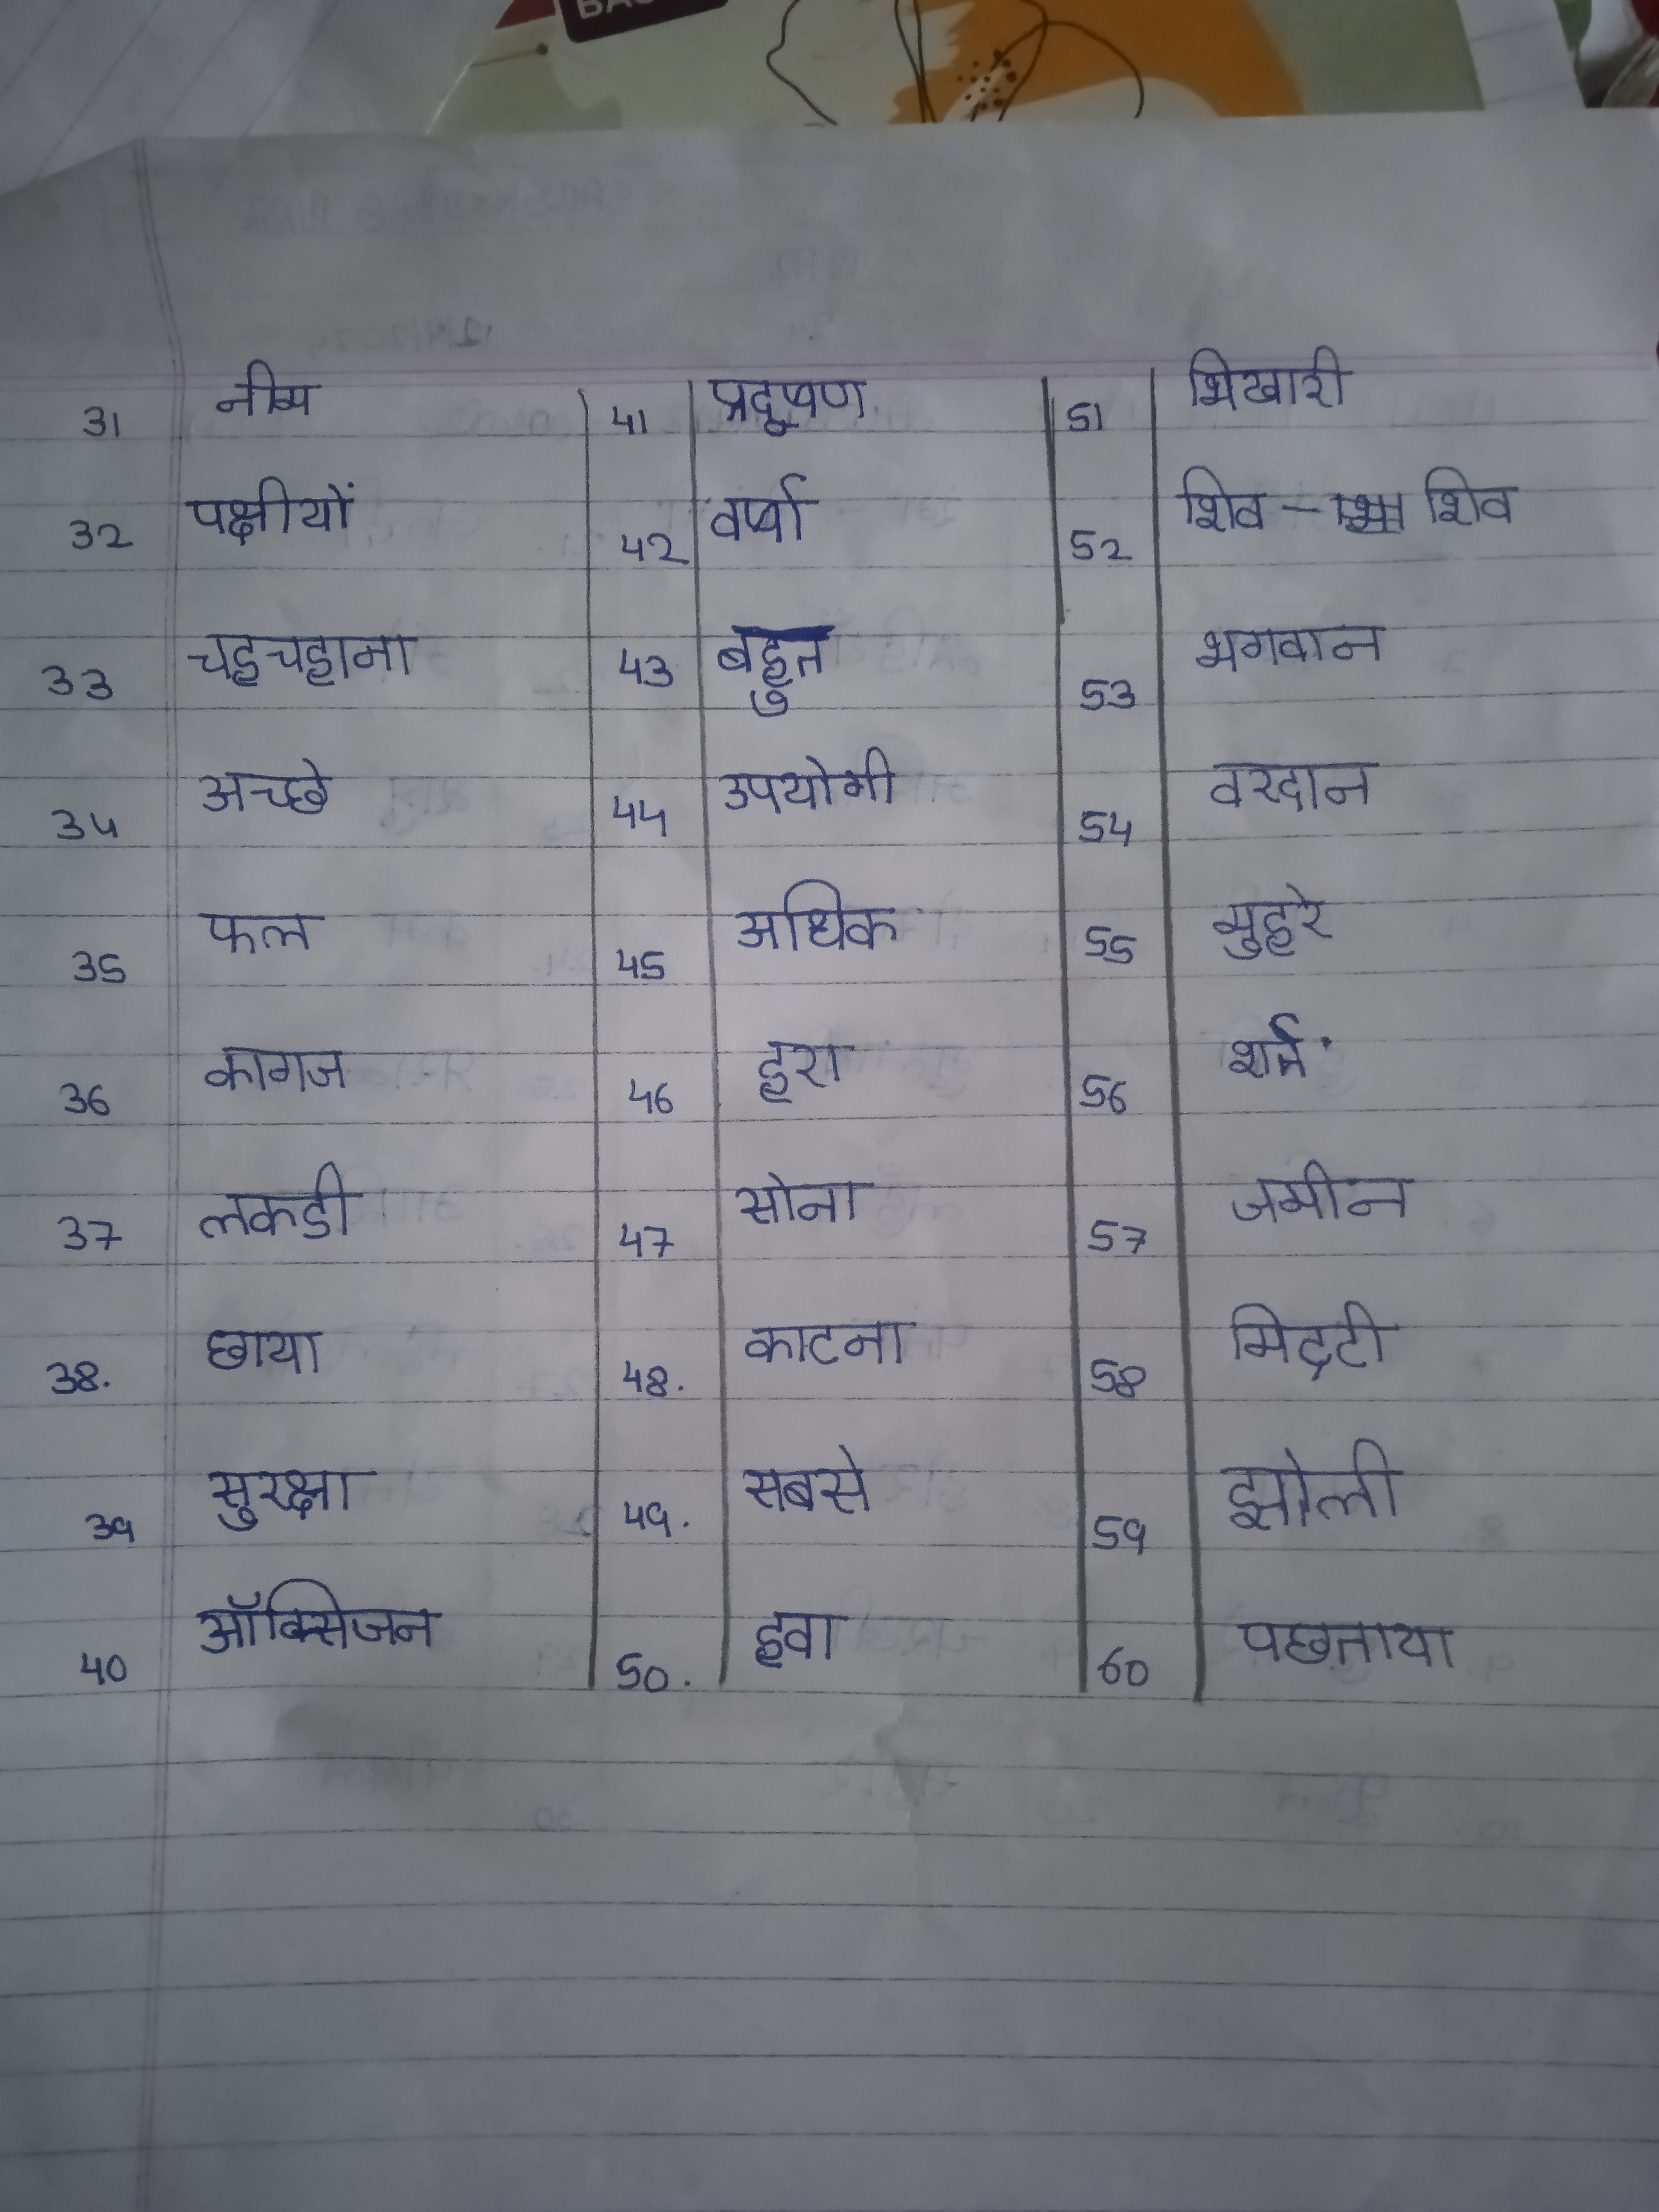 31 नीम 41 प्रदूषण 51 भिखारी
32 पक्षीयों 42 वर्षा 52 शिव - शिव
33 चहचहाना 43 बहुत 53 भगवान
34 अच्छे 44 उपयोगी 54 वरदान
35 फल 45 अधिक 55 मुहरे
36 कागज 46 हरा 56 शर्त
37 लकडी 47 सोना 57 जमीन
38. छाया 48. काटना 58 मिट्टी
39 सुरक्षा 49. सबसे 59 झोली
40 ऑक्सिजन 50. हवा 60 पछताया